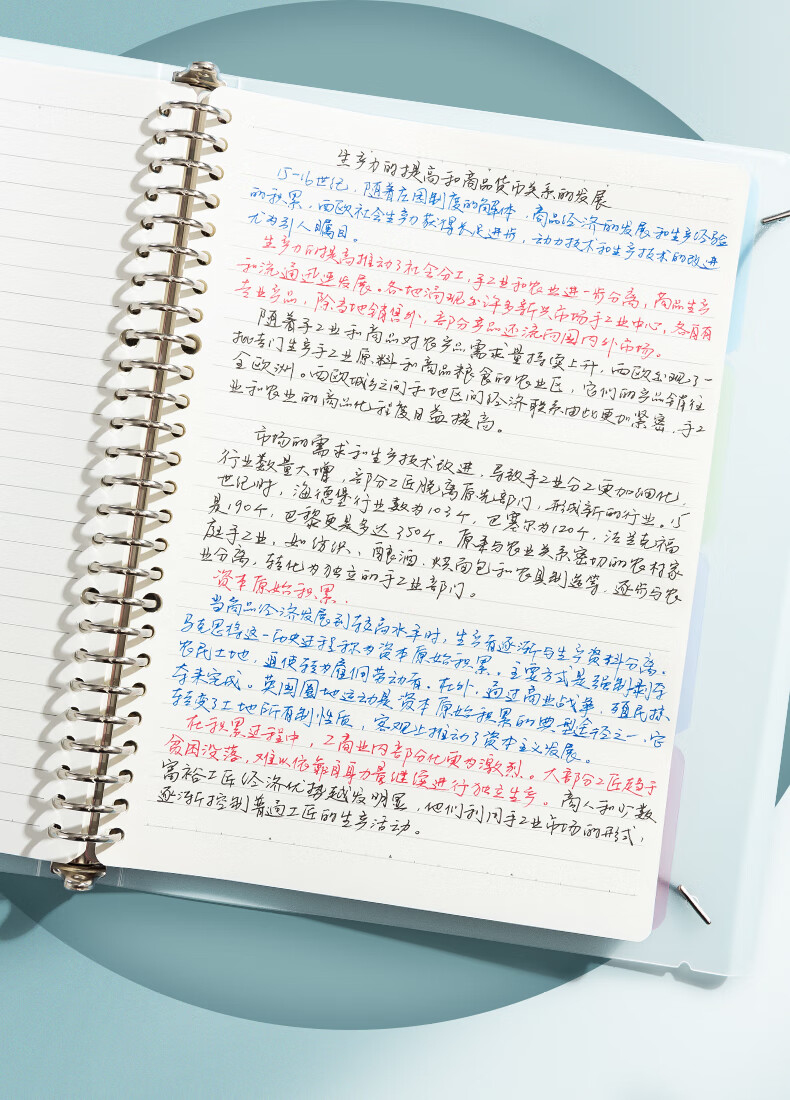 生产力的提高和商品货币关系的发展
15-16世纪，随着庄园制度的解体，商品经济的发展和生产经验
的积累，西欧社会生产力获得长足进步，动力技术和生产技术的改进
尤为引人瞩目。
生产力的提高推动了社会分工，手工业和农业进一步分离，商品生产
和流通迅速发展。各地涌现出许多新兴市场手工业中心，各自有
专业产品，除当地销售外，部分产品还流向国内外市场。
随着手工业和商品对农产品需求量持续上升，西欧出现了一
批专门生产手工业原料和商品粮食的农业区，它们的产品销往
全欧洲。西欧城乡之间和地区间经济联系由此更加紧密，手工
业和农业的商品化程度日益提高。
市场的需求和生产技术改进，导致手工业分工更加细化，
行业数量大增，部分工匠脱离原先部门，形成新的行业。15
世纪时，海德堡行业数为103个，巴塞尔为120个，法兰克福
是190个，巴黎更是多达350个。原来与农业关系密切的农村家
庭手工业，如纺织、酿酒、烘面包和农具制造等，逐步与农
业分离，转化为独立的手工业部门。
资本原始积累，
当商品经济发展到较高水平时，生产者逐渐与生产资料分离。
马克思将这一历史进程称为资本原始积累。主要方式是强制剥夺
农民土地，迫使转为雇佣劳动者。在外，通过商业战争，殖民掠
夺来完成。英国圈地运动是资本原始积累的典型途径之一，它
转变了土地所有制性质，客观上推动了资本主义发展。
在积累过程中，工商业内部分化更为激烈。大部分工匠趋于
贫困没落，难以依靠自身力量继续进行独立生产。商人和少数
富裕工匠经济优势越发明显，他们利用手工业市场的形式，
逐渐控制普通工匠的生产活动。